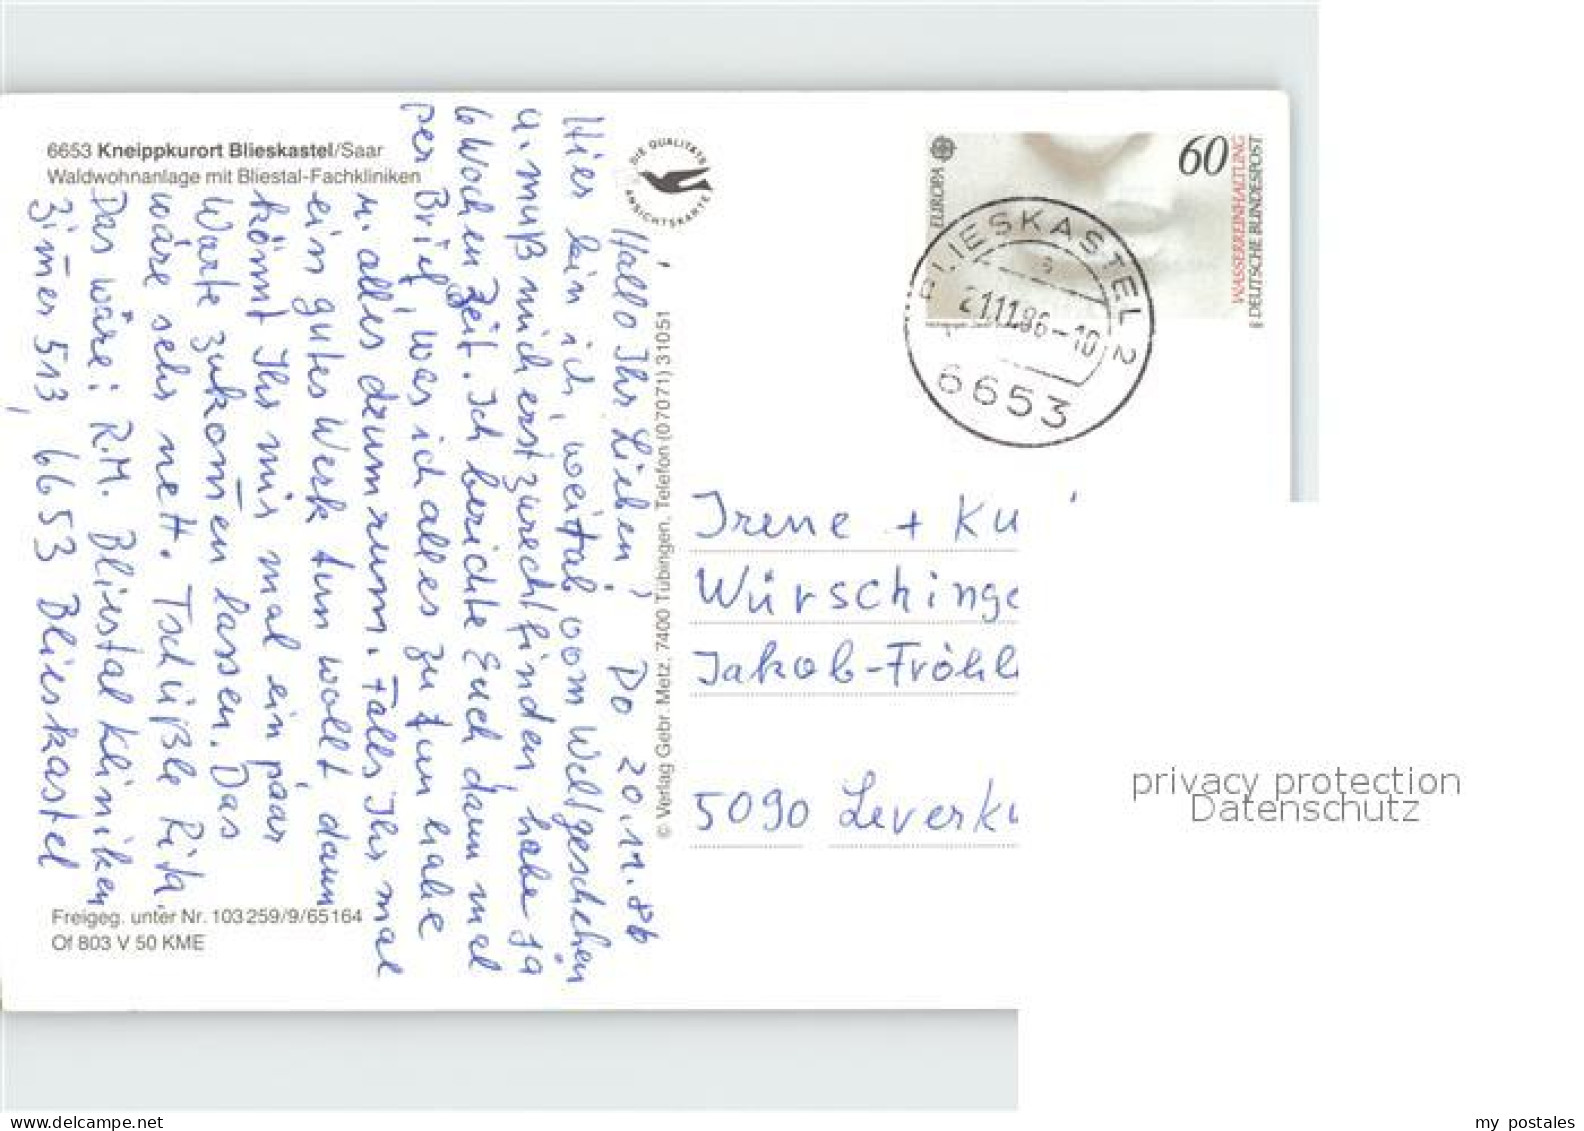 6653 Kneippkurort Blieskastel/Saar
Waldwohnanlage mit Bliestal-Fachkliniken
DIE QUALITÄTS
ANSICHTSKARTE
Hallo Ihr Lieben! Do 20.11.86
Hier bin ich, weitab vom Weltgeschehen
u. muß mich erst zurechtfinden, habe ja
6 Wochen Zeit. Ich berichte Euch dann mal
per Brief, was ich alles zu tun habe
u. alles drumrum. Falls Ihr mal
ein gutes Werk tun wollt, dann
könnt Ihr mir mal ein paar
Worte zukom̄en lassen. Das
wäre sehr nett. Tschüßle Rita.
Das wäre: R.M. Bliestal Kliniken
Zim̄er 513, 6653 Blieskastel
Freigeg. unter Nr. 103259/9/65164
Of 803 V 50 KME
© Verlag Gebr. Metz, 7400 Tübingen, Telefon (07071) 31051
EUROPA
60
WASSERREINHALTUNG
DEUTSCHE BUNDESPOST
BLIESKASTEL 2
21.11.86-10
6653
Irene + Ku
Würschinge
Jakob-Fröhl
5090 Leverku
privacy protection
Datenschutz
www.delcampe.net
my postales